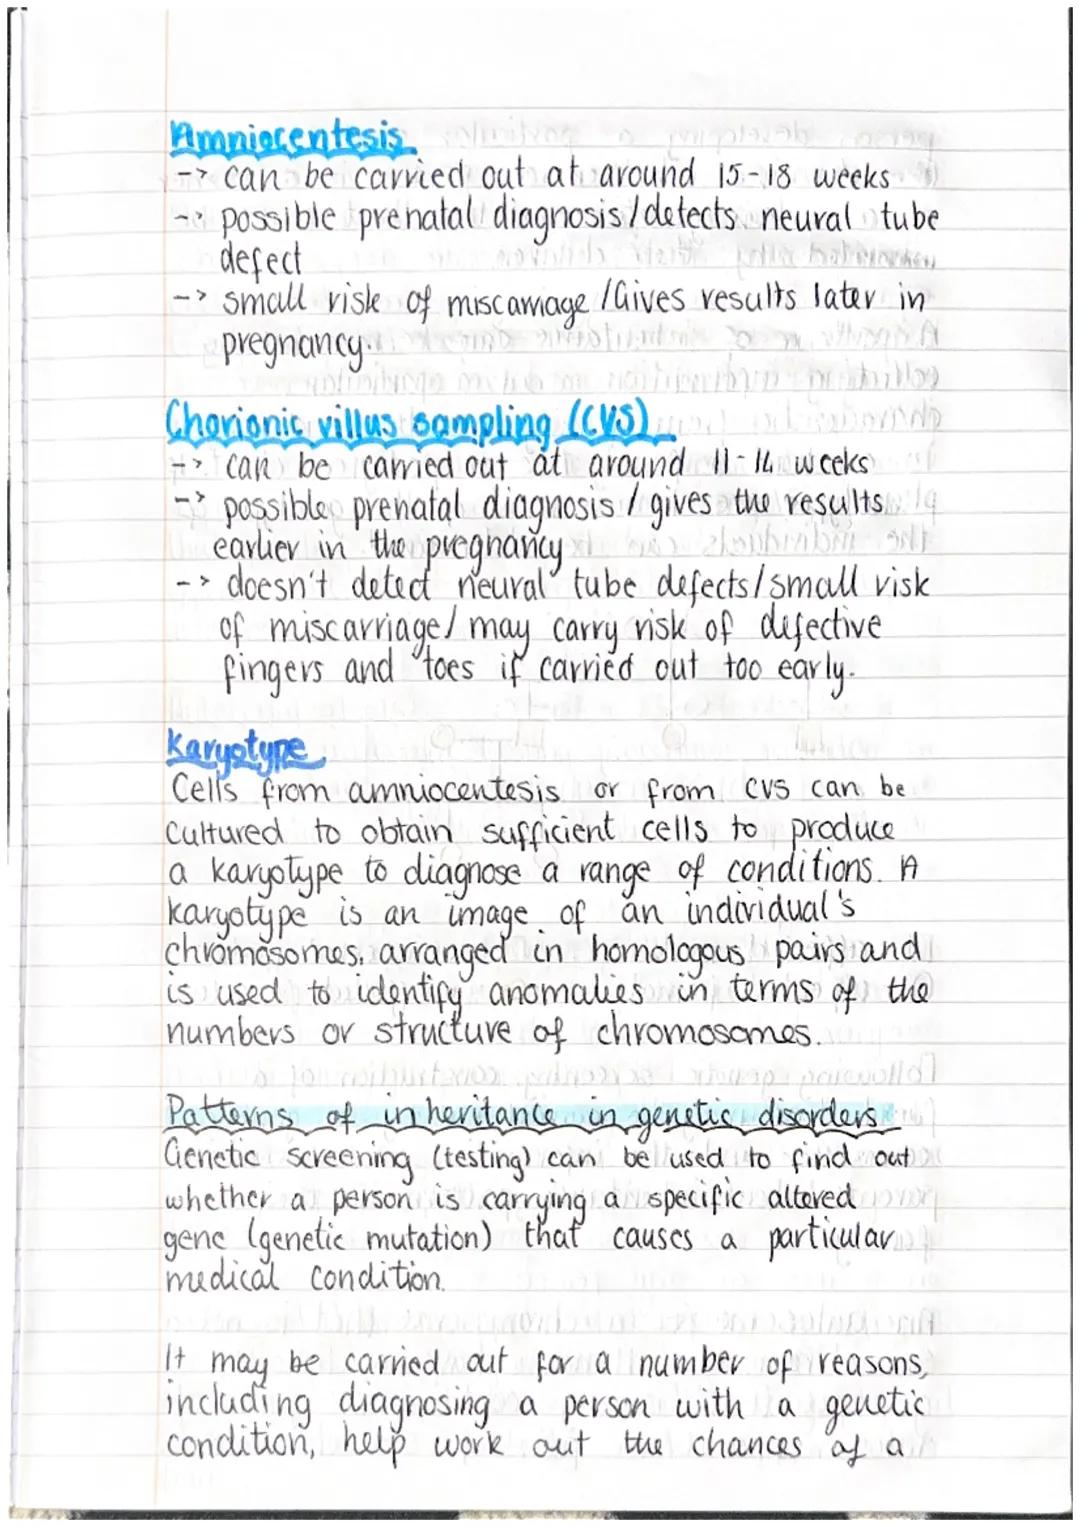 Amniocentesis
-> can be carried out at around 15-18 weeks
-> possible prenatal diagnosis/detects neural tube
defect
-> small risk of miscarriage/Gives results later in
pregnancy.
Chorionic villus sampling (CVS)
-> can be carried out at around 11-14 weeks
-> possible prenatal diagnosis / gives the results
earlier in the pregnancy
-> doesn't detect neural tube defects/small risk
of miscarriage/ may carry risk of defective
fingers and toes if carried out too early.
Karyotype
Cells from amniocentesis or from CVS can be
cultured to obtain sufficient cells to produce
a karyotype to diagnose a range of conditions. A
karyotype is an image of an individual's
chromosomes, arranged in homologous pairs and
is used to identify anomalies in terms of the
numbers or structure of chromosomes.
Patterns of inheritance in genetic disorders
Genetic screening (testing) can be used to find out
whether a person is carrying a specific altered
gene (genetic mutation) that causes a particular
medical condition.
It may be carried out for a number of reasons,
including diagnosing a person with a genetic
condition, help work out the chances of a